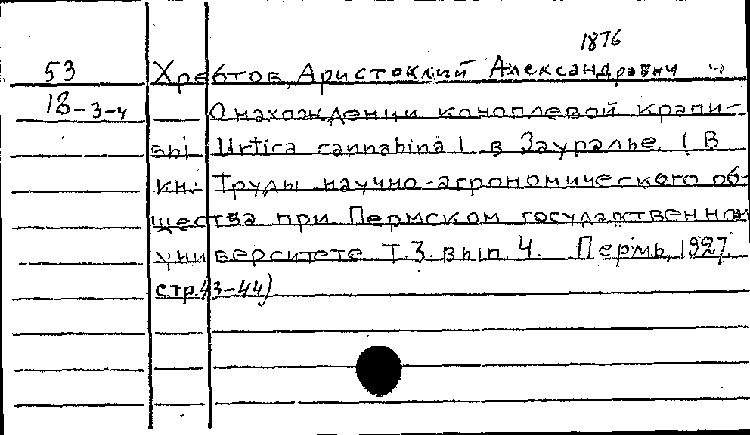 1876
53 Хребтов, Аристоклий Александрович
18-3-4 О нахождении коноплевой крапи-
вы Urtica cannabina L. в Зауралье. (В
кн. Труды научно-агрономического об-
щества при Пермском государственном
университете Т.3. вып. 4. Пермь, 1927
стр. 43-44)